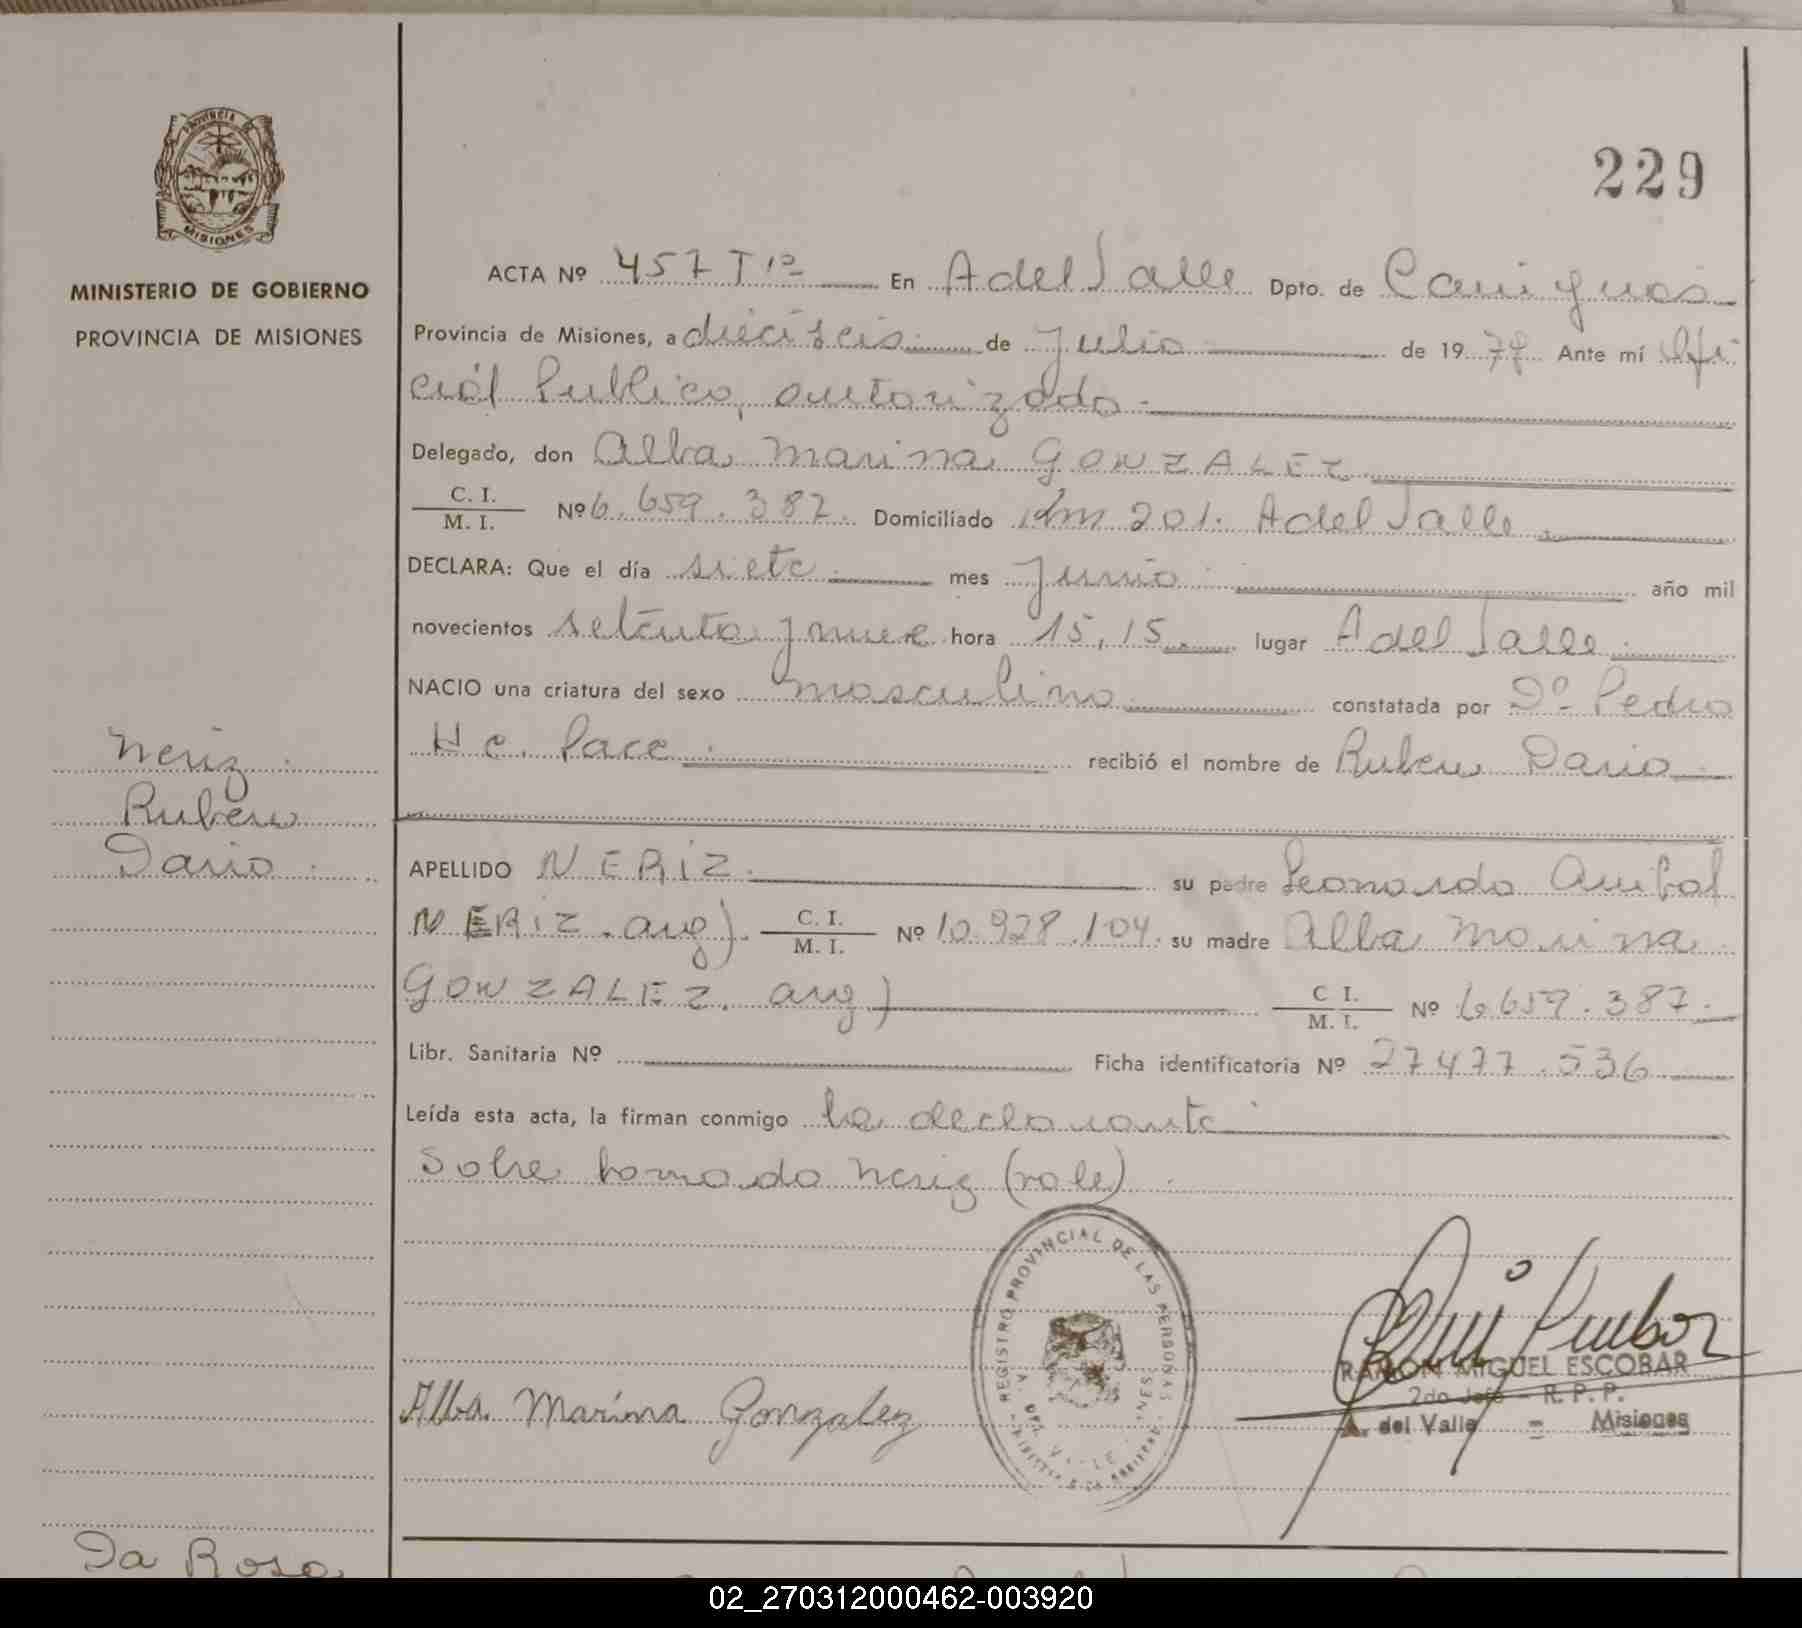 229
PROVINCIA DE
MISIONES
MINISTERIO DE GOBIERNO
PROVINCIA DE MISIONES
ACTA Nº 457 Tº 1º En A del Valle Dpto. de Cainguas
Provincia de Misiones, a dieciseis de Julio de 1979 Ante mí Ofi
cial Publico, autorizado
Delegado, don Alba Marina GONZALEZ
C. I. / M. I. Nº 6.659.387. Domiciliado Km 201. A del Valle
DECLARA: Que el día siete mes Junio año mil
novecientos setenta y nueve hora 15,15 lugar A del Valle
NACIO una criatura del sexo masculino constatada por Dº Pedro
H c. Pace recibió el nombre de Ruben Dario
Neriz
Ruben
Dario
APELLIDO NERIZ su padre Leonardo Anibal
NERIZ. arg). C. I. / M. I. Nº 10.928.104. su madre Alba Marina
GONZALEZ. arg) C I. / M. I. Nº 6.659.387.
Libr. Sanitaria Nº Ficha identificatoria Nº 27477.536
Leída esta acta, la firman conmigo la declarante
Sobre borrado Neriz (vale)
REGISTRO PROVINCIAL DE LAS PERSONAS
Alba Marina Gonzalez
RAMON MIGUEL ESCOBAR
2do Jefe - R. P. P.
A. del Valle = Misiones
Da Rosa
02_270312000462-003920